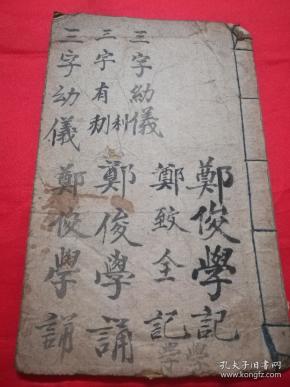 鄭俊學記
三字幼儀
鄭鲛全記
三字有利
鄭俊學誦
三字幼儀
鄭俊學誦
學
學
孔夫子旧书网